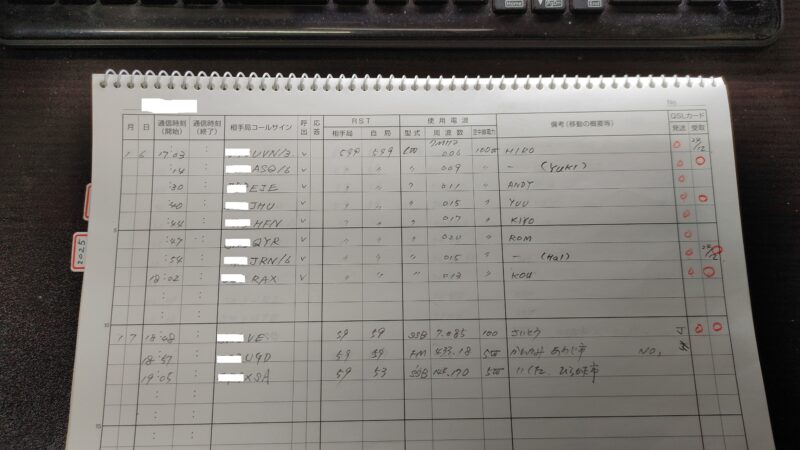 Home
PgDn
End
No.
月 日 通信時刻(開始) 通信時刻(終了) 相手局コールサイン 呼出 応答 RST 相手局 自局 使用電波 型式 周波数 空中線電力 備考(移動の概要等) QSLカード 発送 受取
1 6 17:03 UVN/3 v 599 599 CW 7MHz 006 100W HIRO
:14 ASQ/6 v 〃 〃 〃 009 〃 - (Yuki)
:30 EJE v 〃 〃 〃 011 〃 ANDY
:40 JMU v 〃 〃 〃 015 〃 YUU
:44 HFN v 〃 〃 〃 017 〃 KIYO
5
:47 QYR v 〃 〃 〃 020 〃 ROM
:54 JRN/6 v 〃 〃 〃 015 〃 - (Hal)
18:02 RAX v 〃 〃 〃 013 〃 KOU
10
1 7 18:08 VE 59 59 SSB 7.085 100 さいとう
18:57 UQD 59 59 FM 433.18 5W NO,
19:05 XSA 59 53 SSB 145.170 5W
15
2025